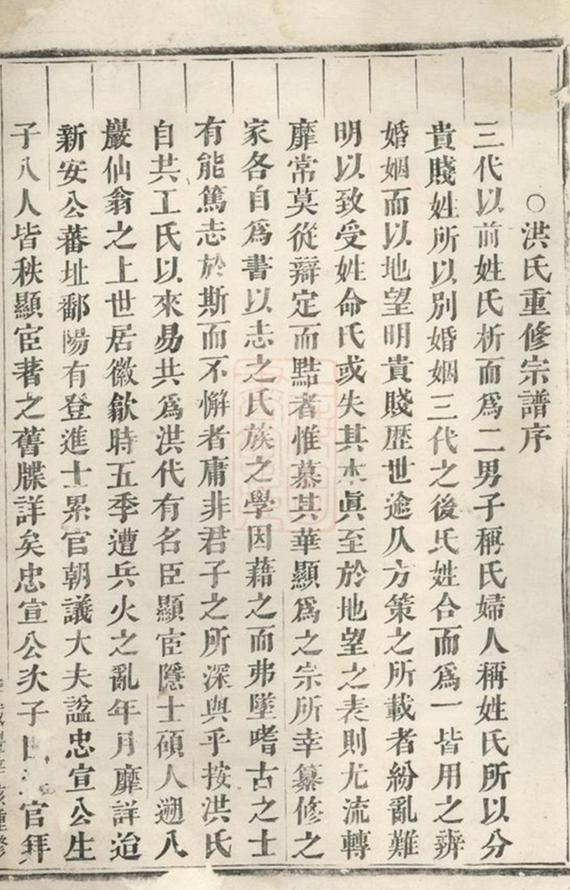 ○洪氏重修宗譜序
三代以前姓氏析而爲二男子稱氏婦人稱姓氏所以分
貴賤姓所以別婚姻三代之後氏姓合而爲一皆用之辨
婚姻而以地望明貴賤歷世逾久方策之所載者紛亂難
明以致受姓命氏或失其本眞至於地望之表則尤流轉
靡常莫從辯定而黠者惟慕其華顯爲之宗所幸纂修之
家各自爲書以志之氏族之學因藉之而弗墜嗜古之士
有能篤志於斯而不懈者庸非君子之所深與乎按洪氏
自共工氏以來易共爲洪代有名臣顯宦隱士碩人遡八
巖仙翁之上世居徽歙時五季遭兵火之亂年月靡詳迨
新安公蕃址鄱陽有登進士累官朝議大夫諡忠宣公生
子八人皆秩顯宦著之舊牒詳矣忠宣公次子 官拜
重修